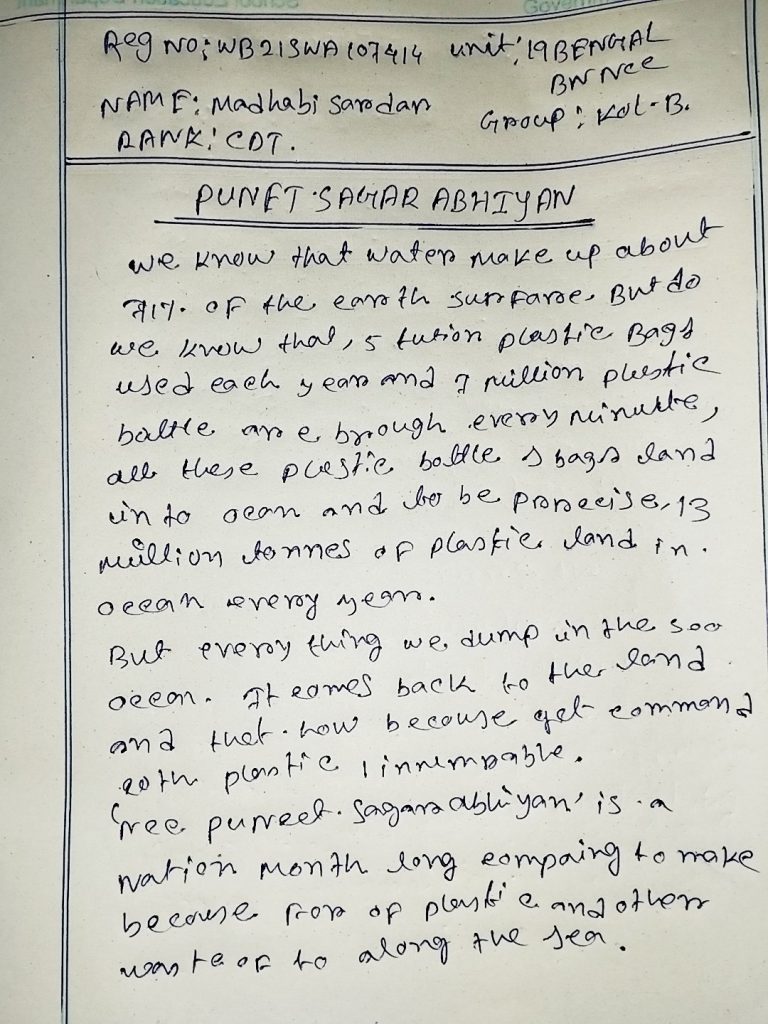 Reg No: WB21SWA107414 unit: 19 BENGAL
BN NCC
NAME: Madhabi Sardar
Group: Kol-B.
RANK: CDT.
PUNET SAGAR ABHIYAN
we know that water make up about
71%. of the earth surfare. But do
we know that, 5 tution plastic Bags
used each year and 7 million plestic
baltle are brough every minutte,
all these plestic bottle & bags land
in to ocan and to be prorecise, 13
million tonnes of plastic land in.
ocean every year.
But every thing we dump in the soo
ocean. It comes back to the land
and thet. how becouse get command
eoth plantic
Ncc puneet. Sagar abhiyan' is a
nation month long compaing to make
becouse for of plastic and other
waste of to along the sea.